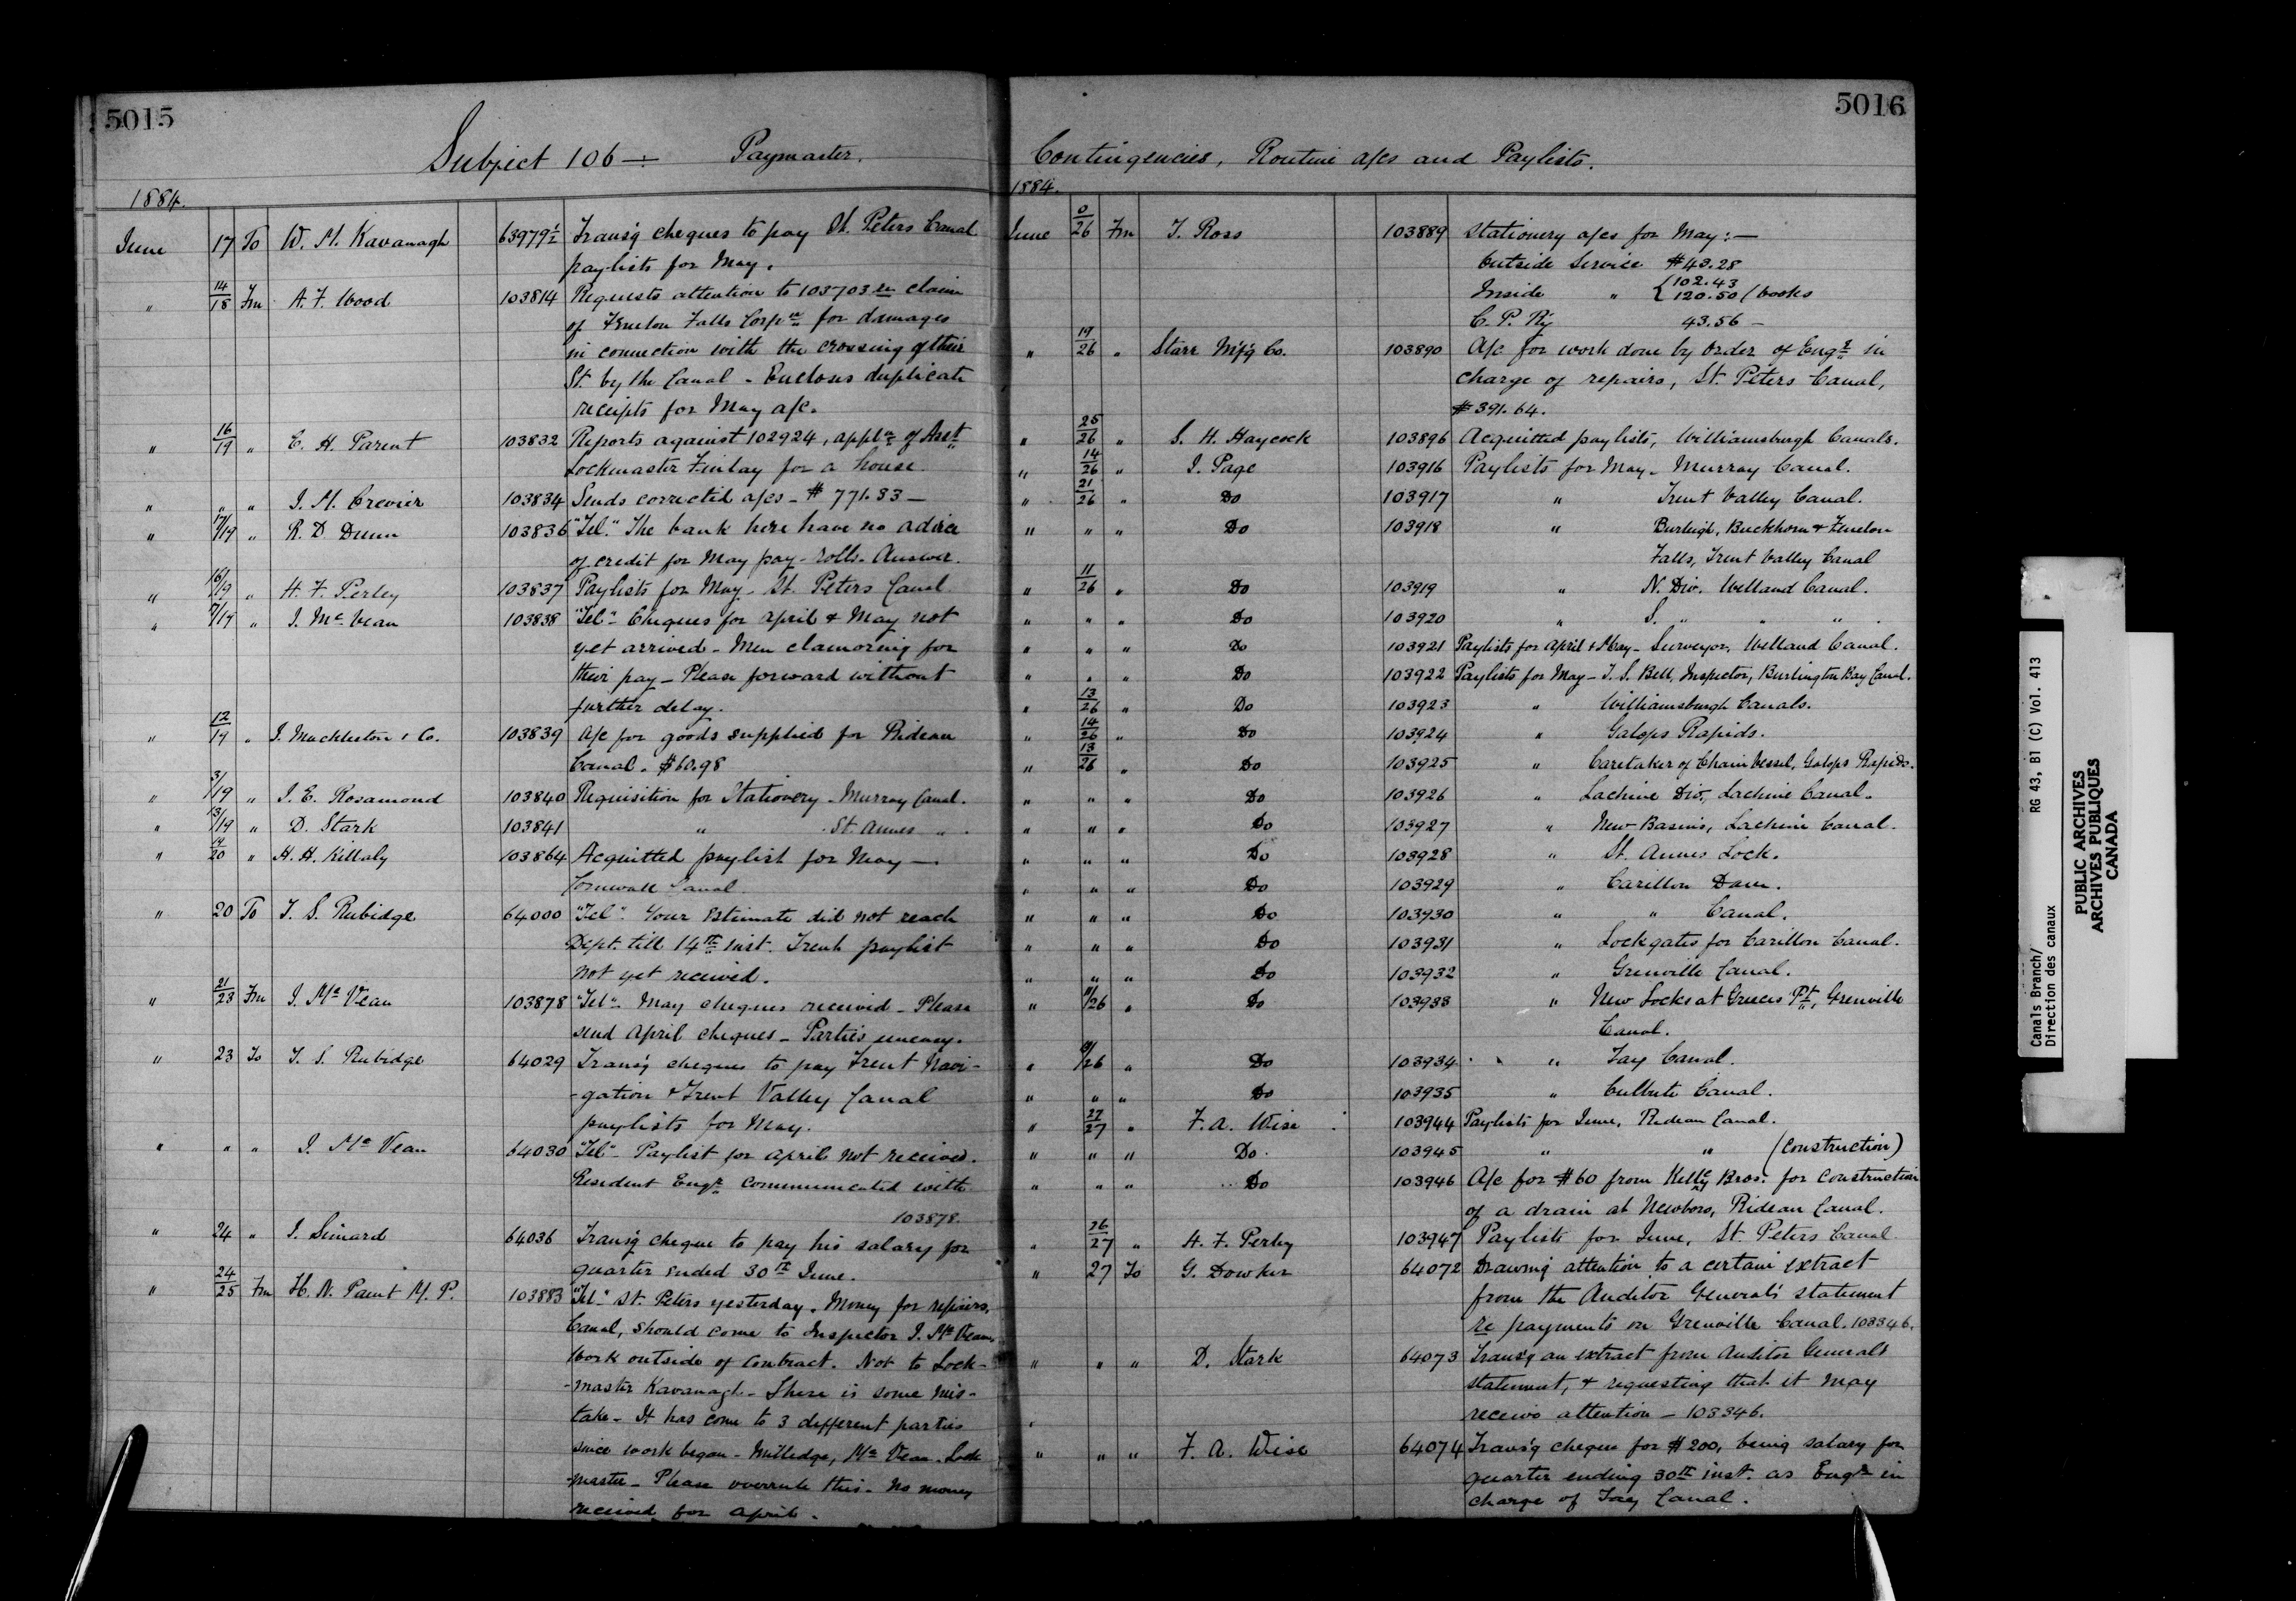 5015
Subject 106 — Paymaster.
1884.
June 17 To W. M. Kavanagh 63979½ Trans'g cheques to pay St. Peters Canal
paylists for May.
" 14/18 Fm A. F. Wood 103814 Requests attention to 103703 re claim
of Fenelon Falls Corpn for damages
in connection with the crossing of their
St. by the Canal. Encloses duplicate
receipts for May a/c.
" 16/19 " E. H. Parent 103832 Reports against 102924, appln of Asst
Lockmaster Finlay for a house.
" " " J. M. Crevier 103834 Sends corrected a/cs - $771.33 —
" 17/19 " R. D. Dunn 103836 "Tel." The bank here have no advice
of credit for May pay-rolls. Answer.
" 16/19 " H. F. Perley 103837 Paylists for May - St. Peters Canal
" 17/19 " J. McVean 103838 "Tel" - Cheques for April & May not
yet arrived - Men clamoring for
their pay - Please forward without
further delay.
" 12/19 " J. Muckleston & Co. 103839 A/c for goods supplied for Rideau
Canal. $60.98
" 3/19 " J. E. Rosamond 103840 Requisition for Stationery - Murray Canal.
" 13/19 " D. Stark 103841 " St. Annes " .
" 14/20 " H. H. Killaly 103864 Acquitted paylist for May —
Cornwall Canal.
" 20 To T. S. Rubidge 64000 "Tel". Your estimate did not reach
Dept. till 14th inst. Trent paylist
not yet received.
" 21/23 Fm J. McVean 103878 "Tel" - May cheques received - Please
send April cheques - Parties uneasy.
" 23 To T. S. Rubidge 64029 Trans'g cheques to pay Trent Navi-
-gation & Trent Valley Canal
paylists for May.
" " " J. McVean 64030 "Tel" - Paylist for April not received.
Resident Engr communicated with
103878.
" 24 " J. Simard 64036 Trans'g cheque to pay his salary for
quarter ended 30th June.
" 24/25 Fm H. N. Paint M. P. 103883 "Tel" St. Peters yesterday. Money for repairs,
Canal, should come to Inspector J. McVean,
Work outside of contract. Not to Lock-
-master Kavanagh - There is some mis-
take - It has come to 3 different parties
since work began - Milledge, McVean, Lock
-master - Please overrule this - No money
received for April.
5016
Contingencies, Routine a/cs and Paylists.
1884.
June 0/26 Fm T. Ross 103889 Stationery a/cs for May: —
Outside Service $43.28
Inside " { 102.43
120.50 (books
C. P. Ry 43.56 —
" 19/26 " Starr M'f'g Co. 103890 A/c for work done by order of Engr in
charge of repairs, St. Peters Canal,
$391.64.
" 25/26 " S. H. Haycock 103896 Acquitted paylists, Williamsburgh Canals.
" 14/26 " J. Page 103916 Paylists for May - Murray Canal.
" 21/26 " Do 103917 " Trent Valley Canal.
" " " Do 103918 " Burleigh, Buckhorn & Fenelon
Falls, Trent Valley Canal
" 11/26 " Do 103919 " N. Div. Welland Canal.
" " " Do 103920 " S. " " " .
" " " Do 103921 Paylists for April & May - Surveyor, Welland Canal.
" " " Do 103922 Paylists for May - T. S. Bell, Inspector, Burlington Bay Canal.
" 13/26 " Do 103923 " Williamsburgh Canals.
" 14/26 " Do 103924 " Galops Rapids.
" 13/26 " Do 103925 " Caretaker of Chain Vessel, Galops Rapids.
" " " Do 103926 " Lachine Div., Lachine Canal.
" " " Do 103927 " New Basins, Lachine Canal.
" " " Do 103928 " St. Annes Lock.
" " " Do 103929 " Carillon Dam.
" " " Do 103930 " " Canal.
" " " Do 103931 " Lock gates for Carillon Canal.
" " " Do 103932 " Grenville Canal.
" 11/26 " Do 103933 " New Locks at Greeces Pt, Grenville
Canal.
" /26 " Do 103934 " Tay Canal.
" " " Do 103935 " Culbute Canal.
" 27/27 " F. A. Wise 103944 Paylists for June, Rideau Canal.
" " " Do 103945 " " (Construction)
" " " Do 103946 A/c for $60 from Kelly Bros. for construction
of a drain at Newboro, Rideau Canal.
" 26/27 " H. F. Perley 103947 Paylists for June, St. Peters Canal
" 27 To G. Dowker 64072 Drawing attention to a certain extract
from the Auditor General's statement
re payments on Grenville Canal. 103346.
" " " D. Stark 64073 Trans'g an extract from Auditor Generals
statement, & requesting that it may
receive attention - 103346.
" " " F. A. Wise 64074 Trans'g cheque for $200, being salary for
quarter ending 30th inst. as Engr in
charge of Tay Canal.
Canals Branch/ RG 43, B1 (C) Vol. 413
Direction des canaux
PUBLIC ARCHIVES
ARCHIVES PUBLIQUES
CANADA